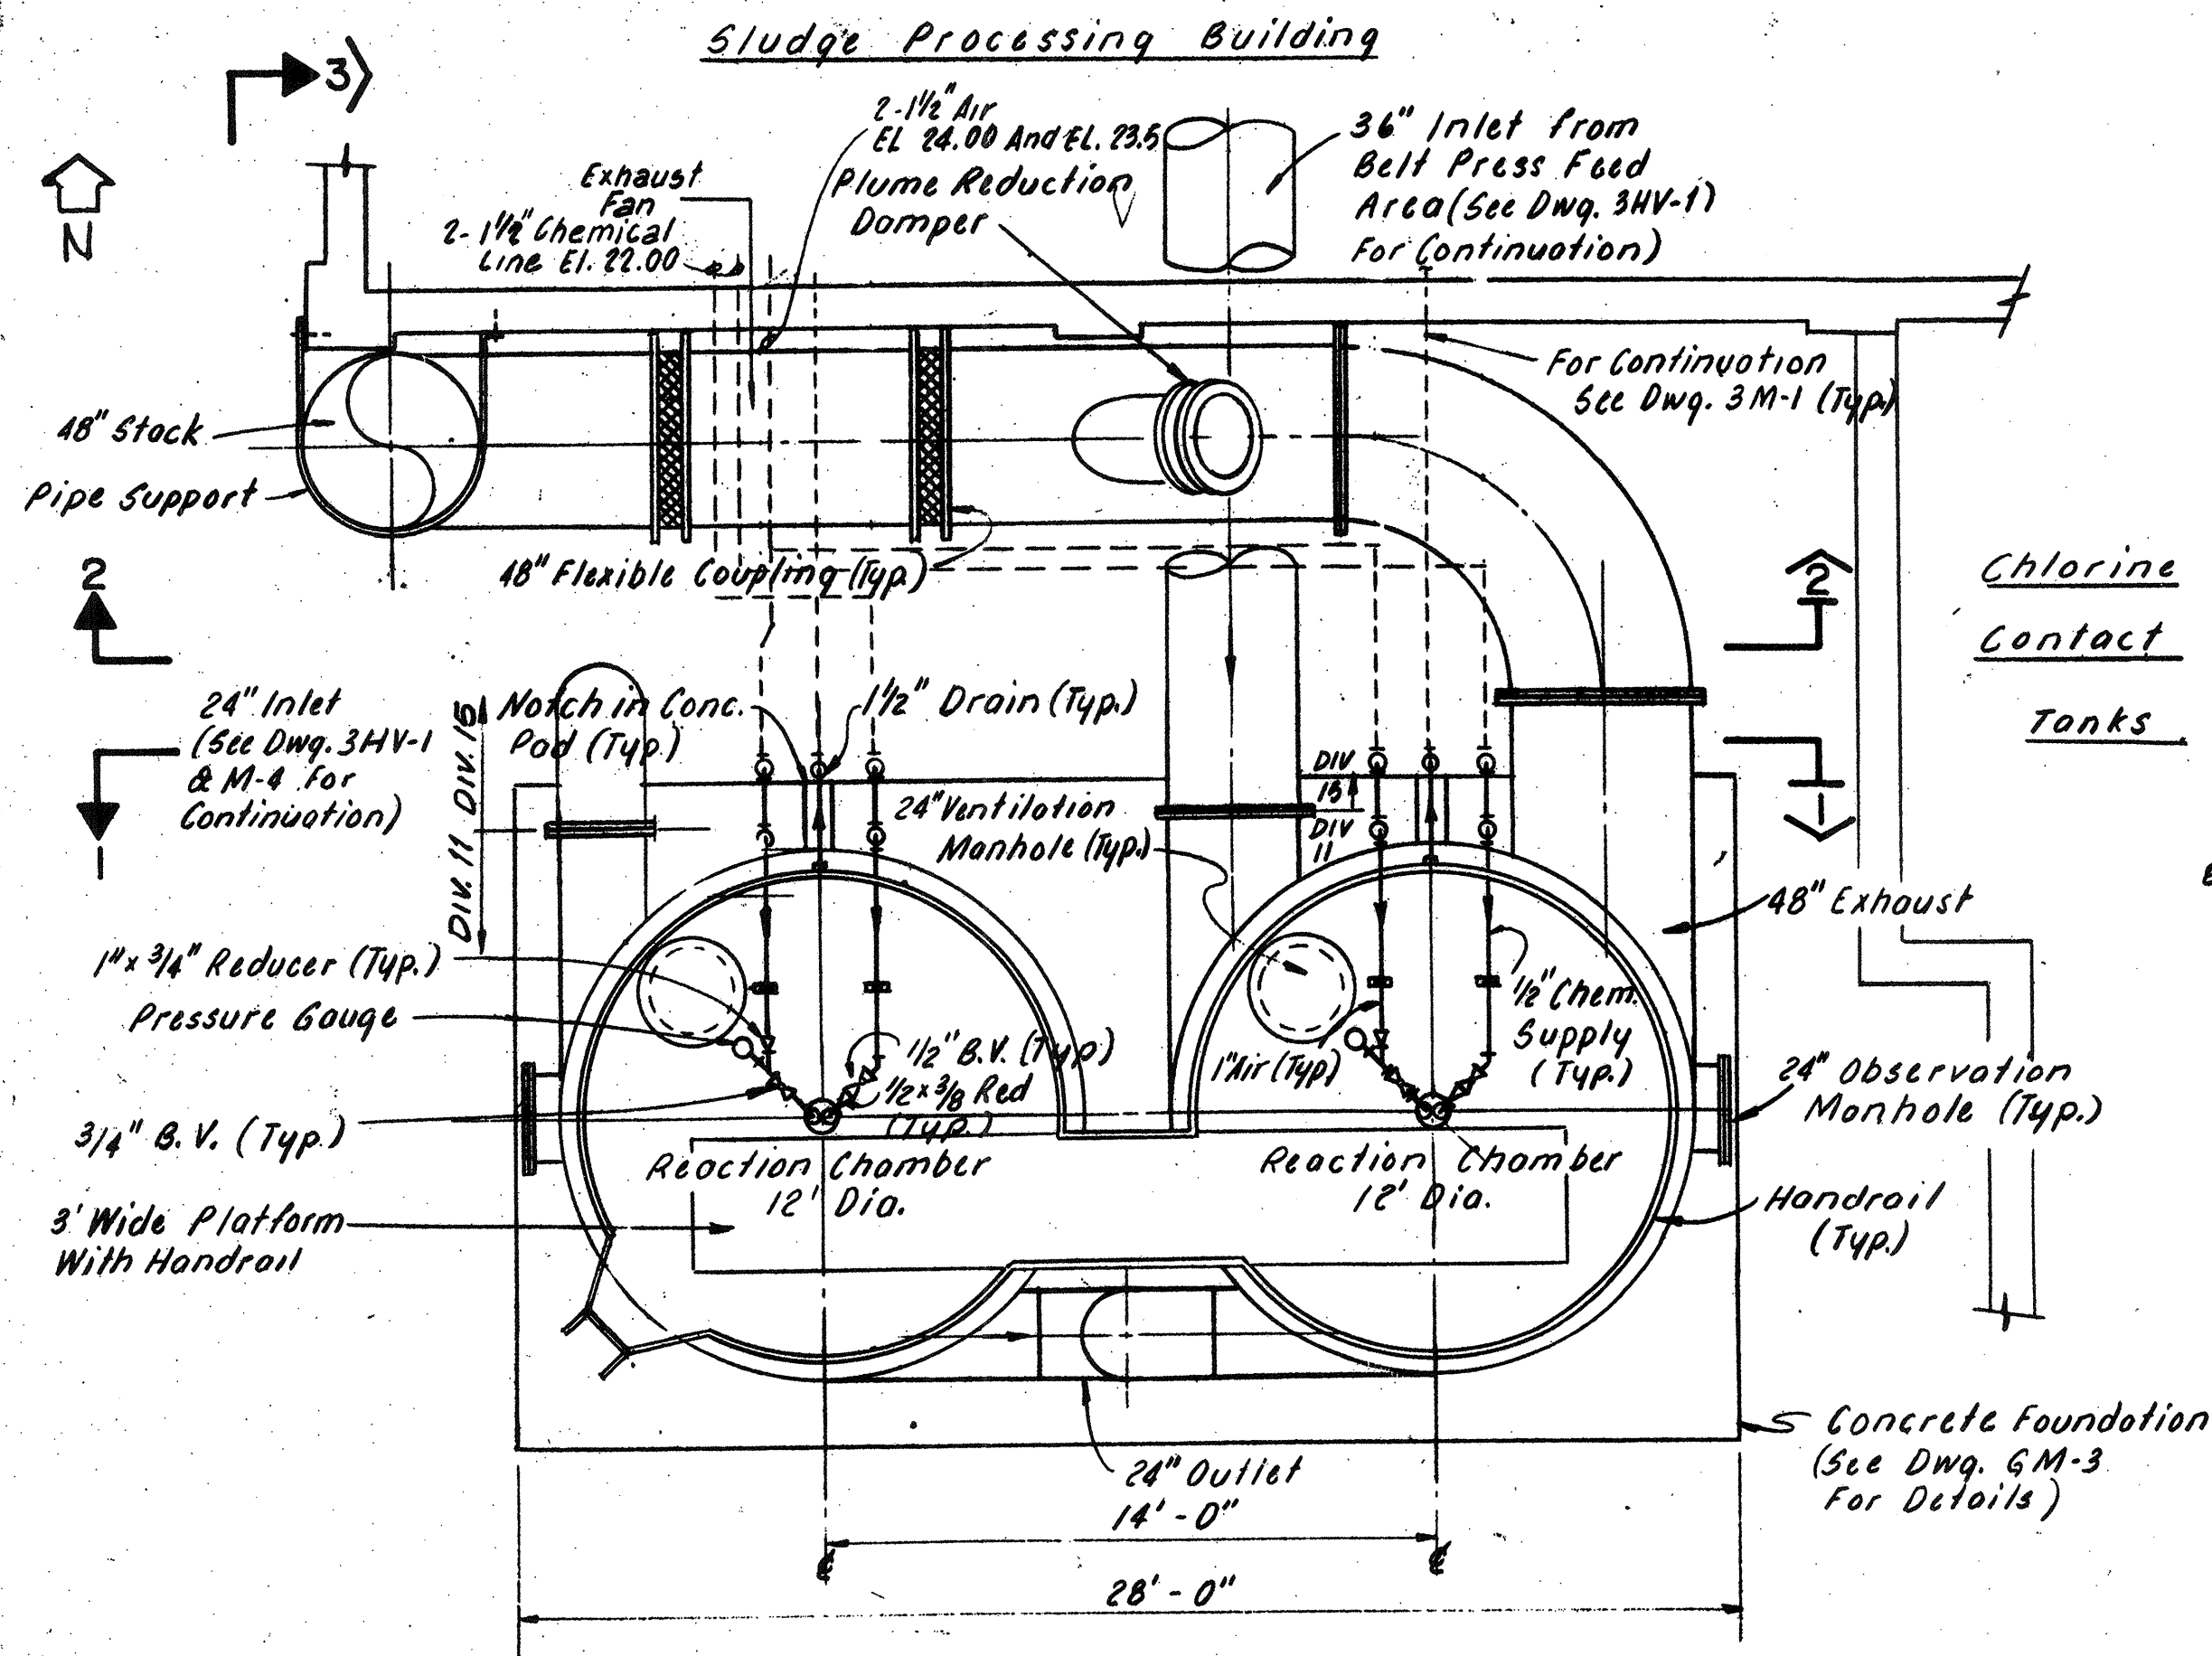 Sludge Processing Building
3
N
2-1½" Air
El 24.00 And El. 23.5
Exhaust
Fan
2-1½" Chemical
Line El. 22.00
Plume Reduction
Damper
36" Inlet from
Belt Press Feed
Area (See Dwg. 3HV-1)
For Continuation)
For Continuation
See Dwg. 3M-1 (Typ.)
48" Stack
Pipe Support
48" Flexible Coupling (Typ.)
2
2
Chlorine
Contact
Tanks
24" Inlet
(See Dwg. 3HV-1
& M-4 For
Continuation)
1
1
Div. 11 Div. 15
Notch in Conc.
Pad (Typ.)
1½" Drain (Typ.)
24" Ventilation
Manhole (Typ.)
DIV
15
DIV
11
48" Exhaust
1" x 3/4" Reducer (Typ.)
Pressure Gauge
3/4" B.V. (Typ.)
½" B.V. (Typ)
½ x 3/8 Red
(Typ.)
1" Air (Typ)
½" Chem.
Supply
(Typ.)
24" Observation
Manhole (Typ.)
Reaction Chamber
12' Dia.
Reaction Chamber
12' Dia.
3' Wide Platform
With Handrail
Handrail
(Typ.)
24" Outlet
Concrete Foundation
(See Dwg. GM-3
For Details)
14'-0"
℄
℄
28'-0"